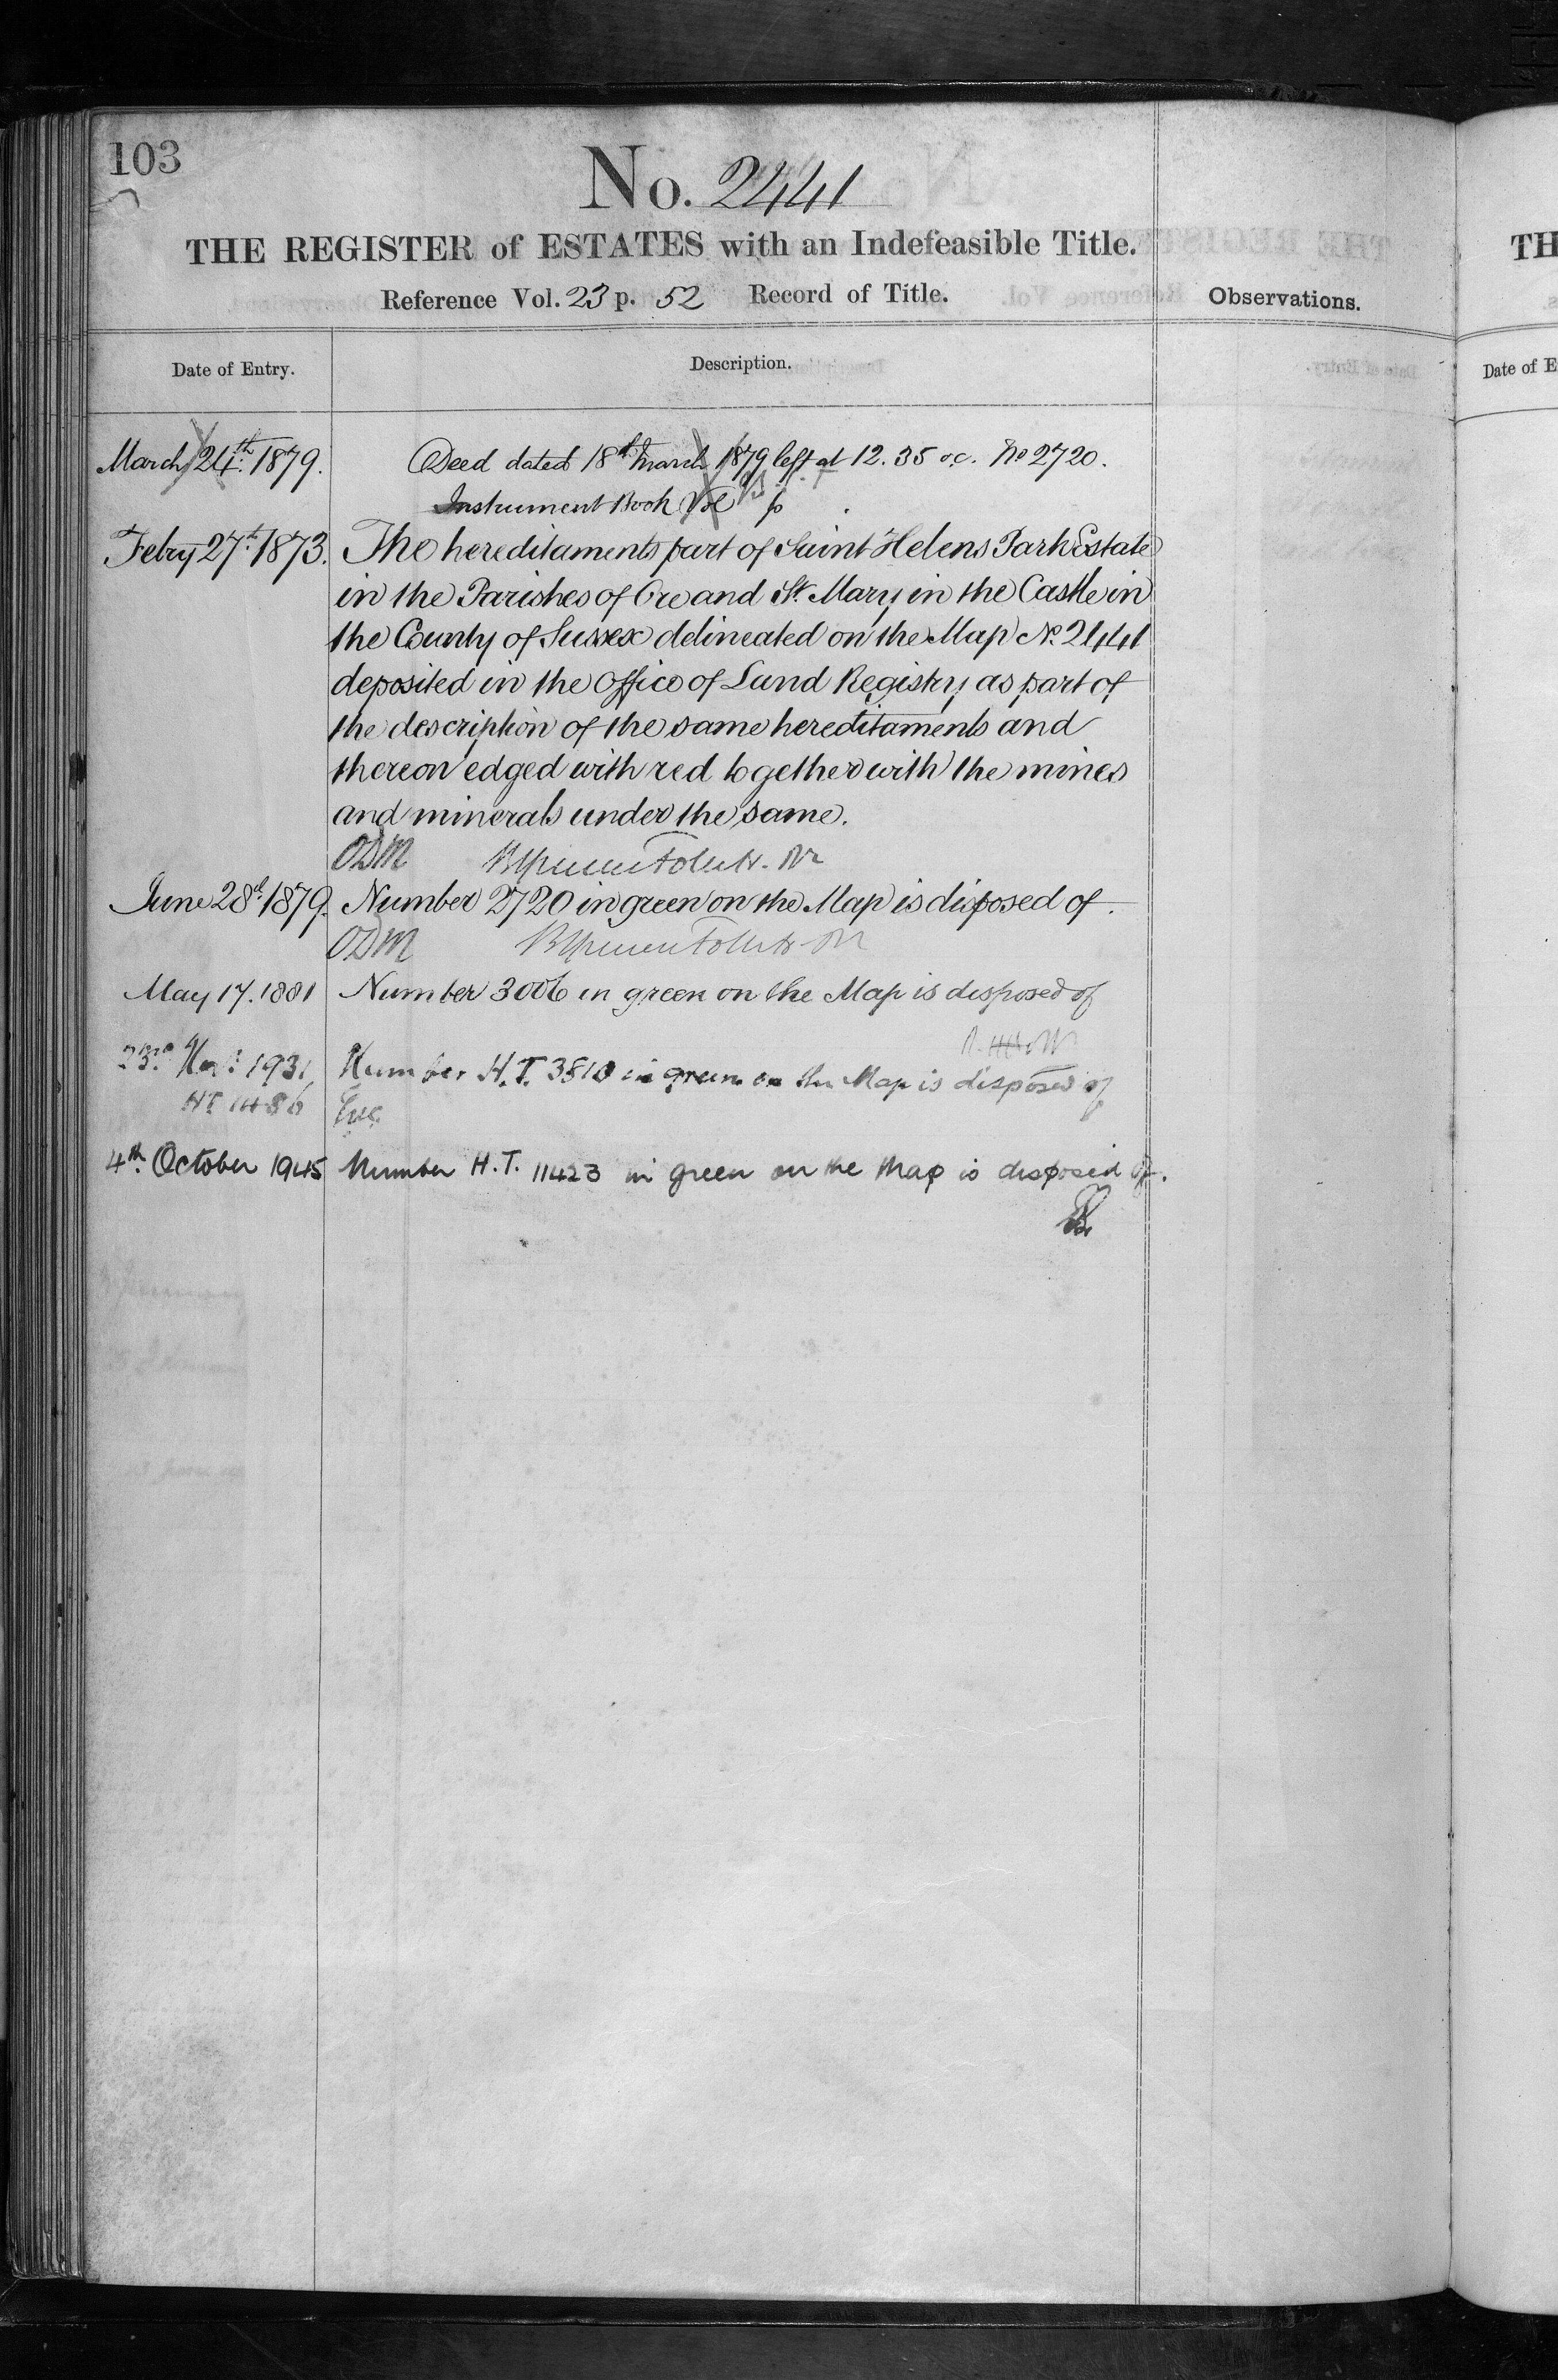 103
No. 2441
THE REGISTER of ESTATES with an Indefeasible Title.
Reference Vol. 23 p. 52 Record of Title.
Observations.
Date of Entry.
Description.
March 24th 1879. Deed dated 18th March 1879 left at 12.35 o.c. No 2720.
Instrument Book Vol p
Febry 27th 1873. The hereditaments part of Saint Helens Park Estate
in the Parishes of Ore and St. Mary in the Castle in
the County of Sussex delineated on the Map No. 2441
deposited in the Office of Land Registry as part of
the description of the same hereditaments and
thereon edged with red together with the mines
and minerals under the same.
ODM
June 28th 1879. Number 2720 in green on the Map is disposed of.
ODM
May 17. 1881 Number 3006 in green on the Map is disposed of
23rd Nov: 1931 Number H.T. 3510 in green on the Map is disposed of
HT 1486
4th October 1945 Number H.T. 11423 in green on the Map is disposed of.
TH
Date of E